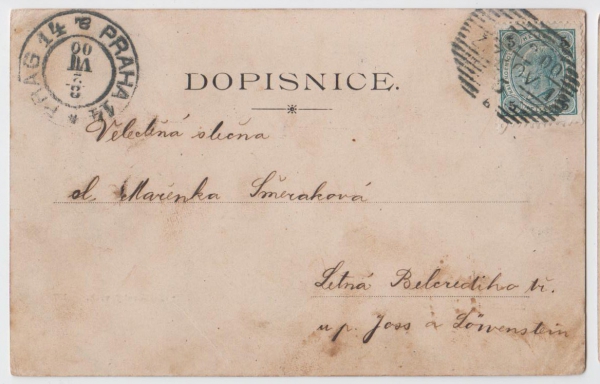 PRAG 14 PRAHA 14
DOPISNICE.
Velectěná slečna
sl. Mařenka Směraková
Letná Belcrediho tř.
u p. Joss a Löwenstein